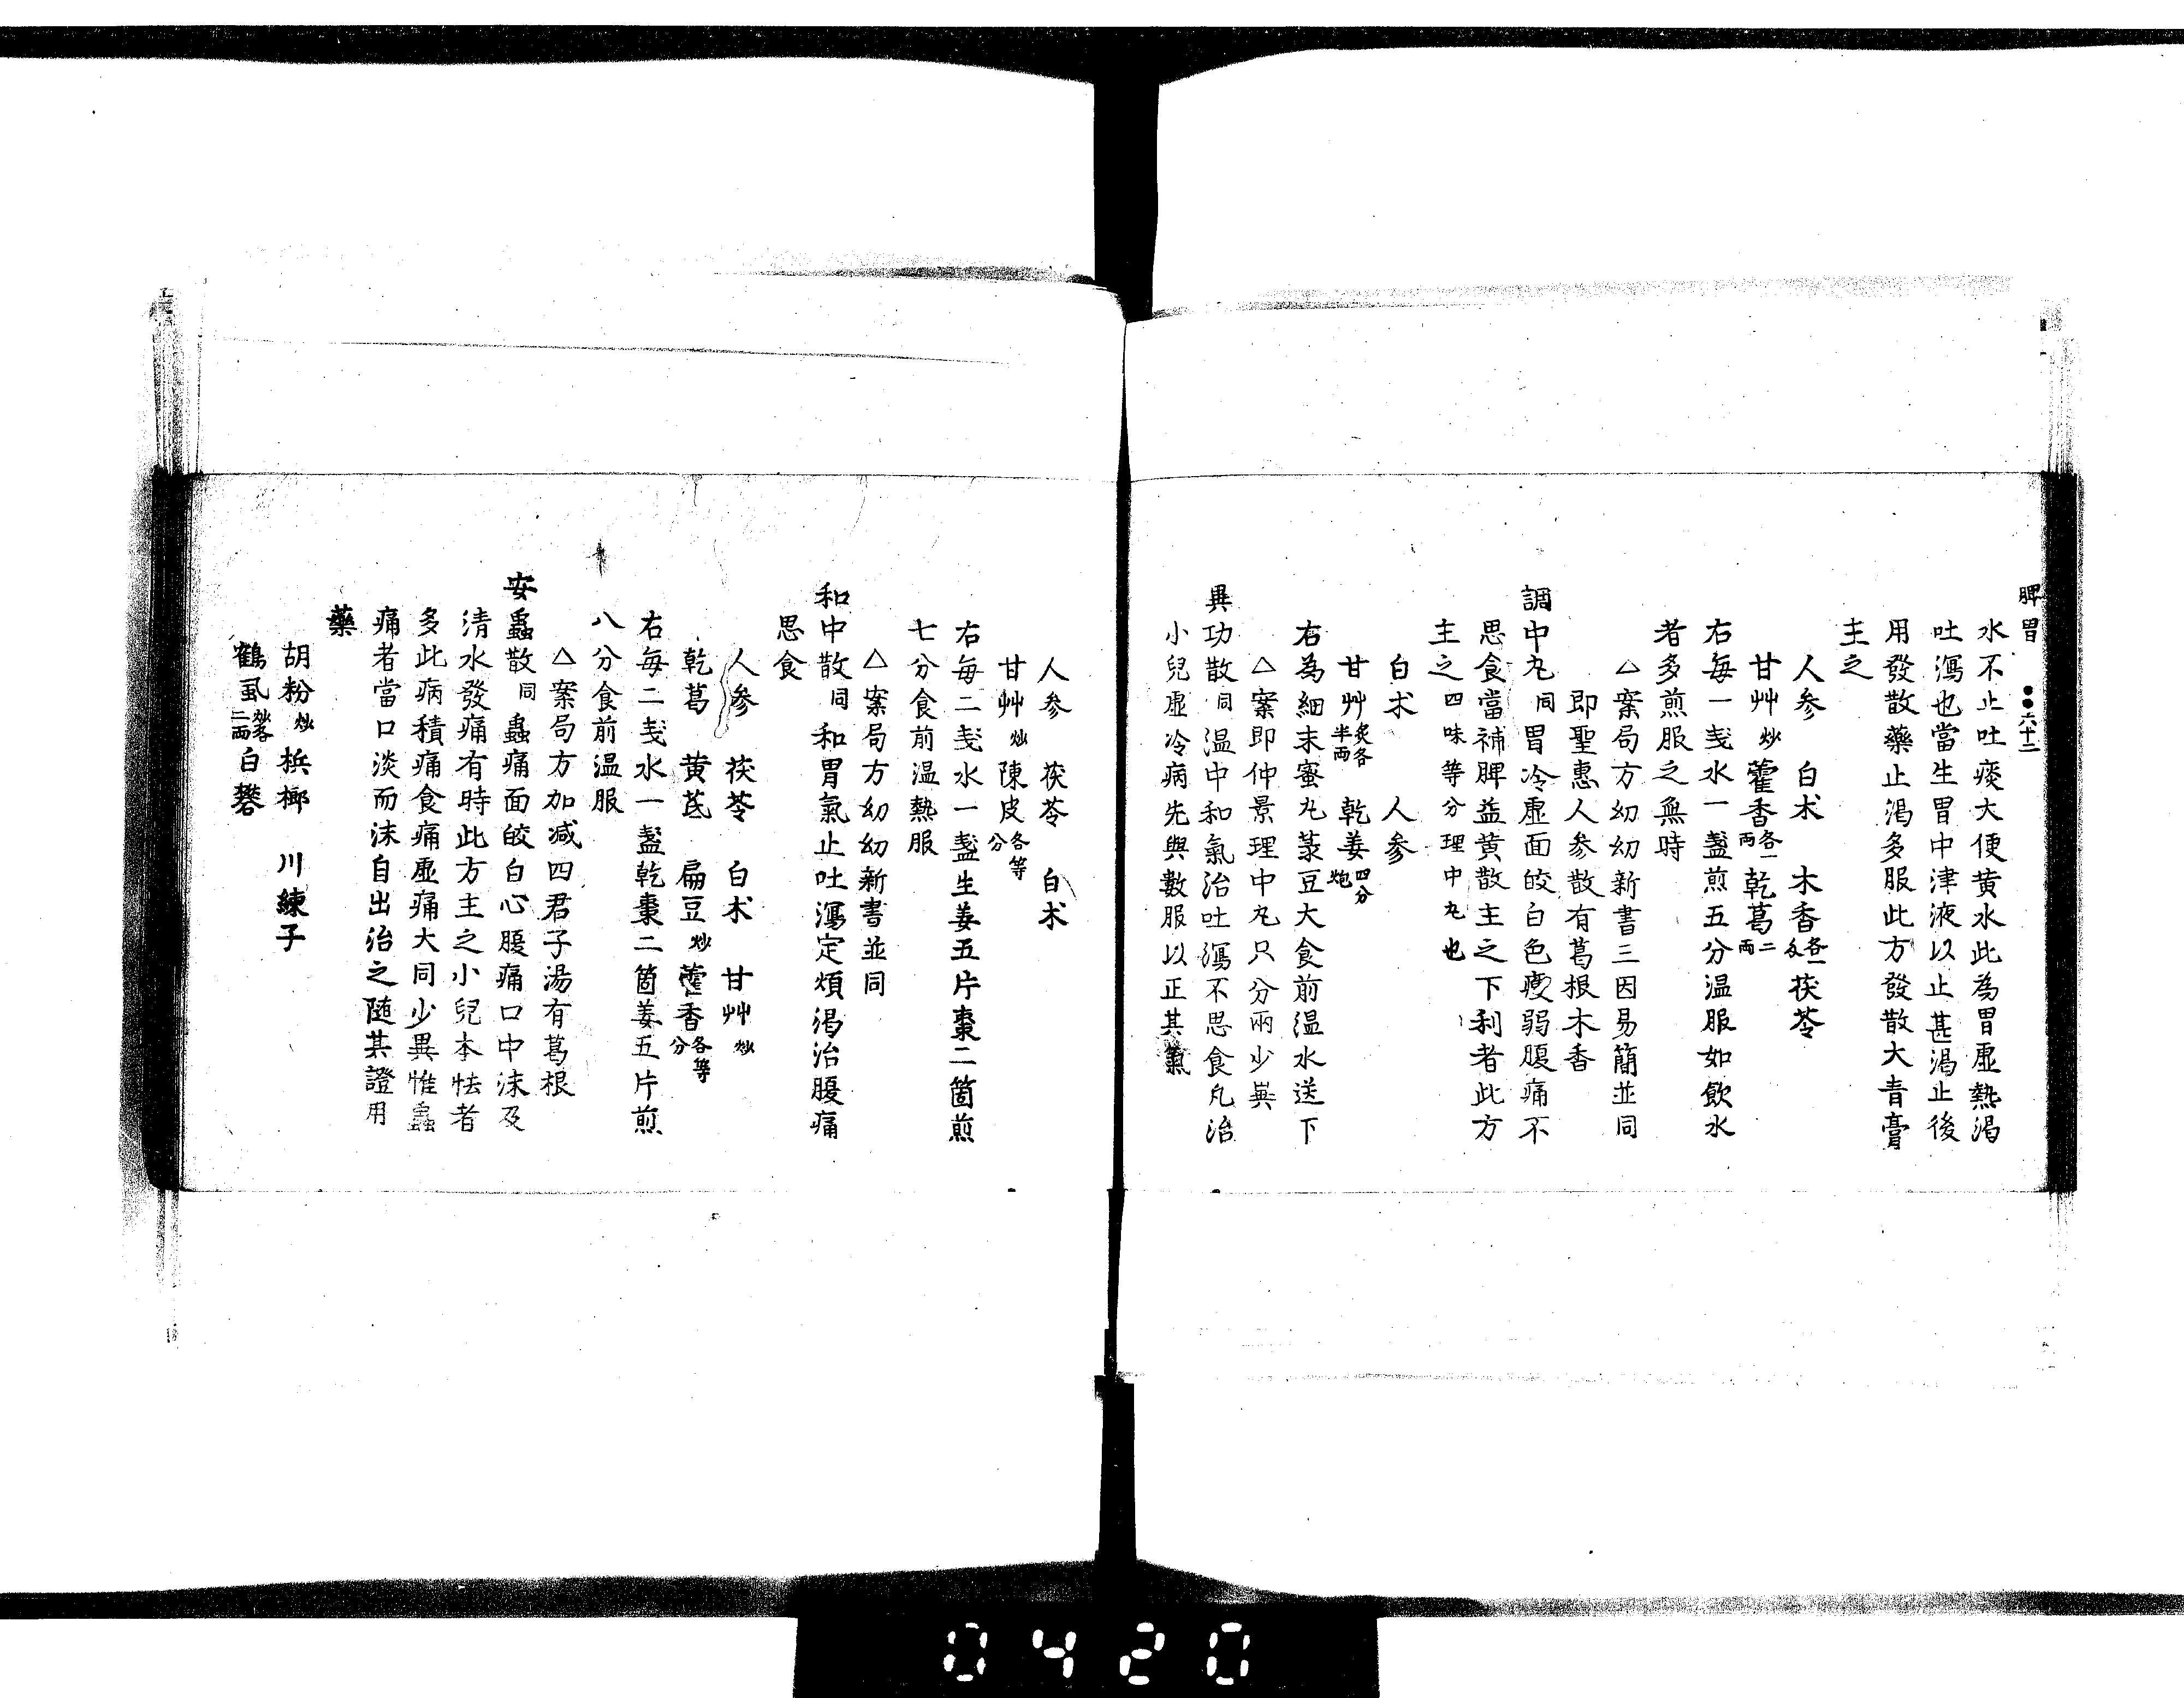 脾胃 ●●六十二
水不止吐痰大便黄水此為胃虚熱渇
吐瀉也當生胃中津液以止甚渇止後
用發散藥止渇多服此方發散大青膏
主之
人参 白朮 木香各一戔茯苓
甘艸炒藿香各一両乾葛二両
右毎一戔水一盞煎五分温服如飲水
者多煎服之無時
△案局方幼幼新書三因易簡並同
即聖惠人参散有葛根木香
調中丸同胃冷虚面皎白色瘦弱腹痛不
思食當補脾益黄散主之下利者此方
主之四味等分理中丸也
白朮 人参
甘艸炙各半両 乾姜四分炮
右為細末蜜丸菉豆大食前温水送下
△案即仲景理中丸只分兩少異
異功散同温中和氣治吐瀉不思食凡治
小兒虚冷病先與數服以正其氣
人参 茯苓 白朮
甘艸炒陳皮各等分
右毎二戔水一盞生姜五片棗二箇煎
七分食前温熱服
△案局方幼幼新書並同
和中散同和胃氣止吐瀉定煩渇治腹痛
思食
人参 茯苓 白朮 甘艸炒
乾葛 黄芪 扁豆炒藿香各等分
右毎二戔水一盞乾棗二箇姜五片煎
八分食前温服
△案局方加减四君子湯有葛根
安蟲散同蟲痛面皎白心腹痛口中沫及
清水發痛有時此方主之小兒本怯者
多此病積痛食痛虚痛大同少異惟蟲
痛者當口淡而沫自出治之随其證用
藥
胡粉炒 梹榔 川練子
鶴虱炒各二両白礬
0420